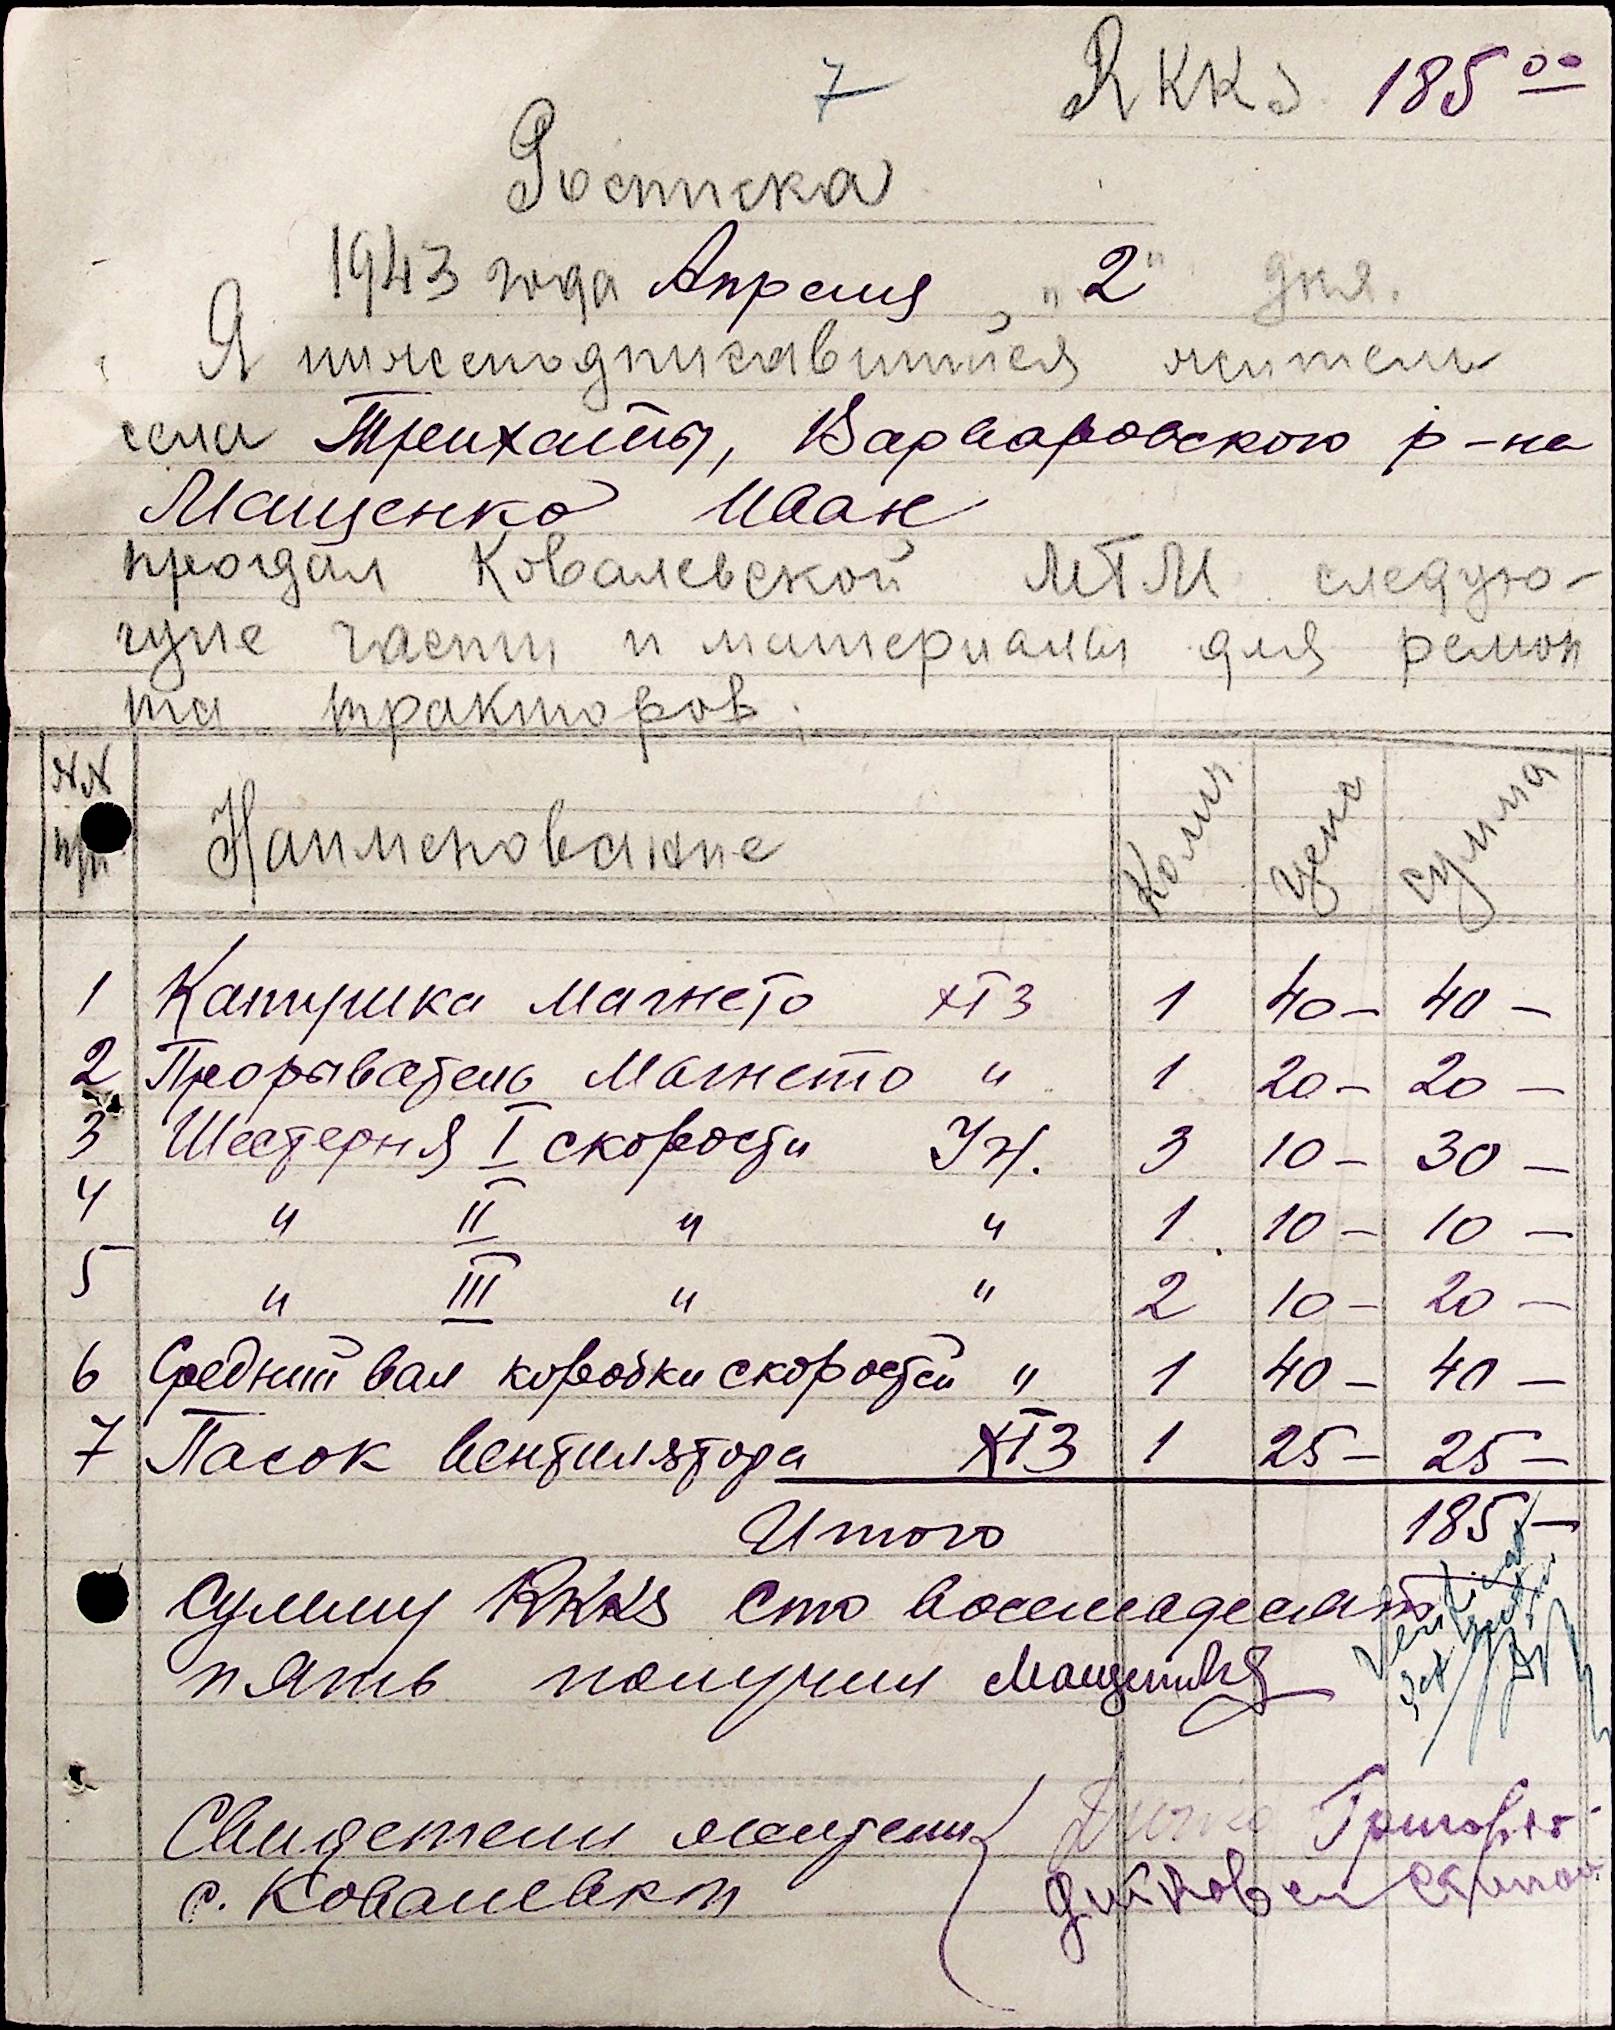 7 RKKS 185 00
Росписка
1943 года Апреля „2" дня.
Я нижеподписавшийся житель
села Трихаты, Варваровского р-на
Мащенко Иван
продал Ковалевской МТМ следую-
щие части и материалы для ремон
та тракторов.
NN п/п Наименование Колич Цена сумма
1 Катушка Магнето ХТЗ 1 40- 40-
2 Прорыватель Магнето " 1 20- 20-
3 Шестерня I скорости Ун. 3 10- 30-
4 " II " " 1 10- 10-
5 " III " " 2 10- 20-
6 Средний вал коробки скоростей " 1 40- 40-
7 Пасок вентилятора ХТЗ 1 25- 25-
Итого 185-
Сумму RKKS сто восемьдесят
пять получил
Свидетели жители
с. Ковалевки